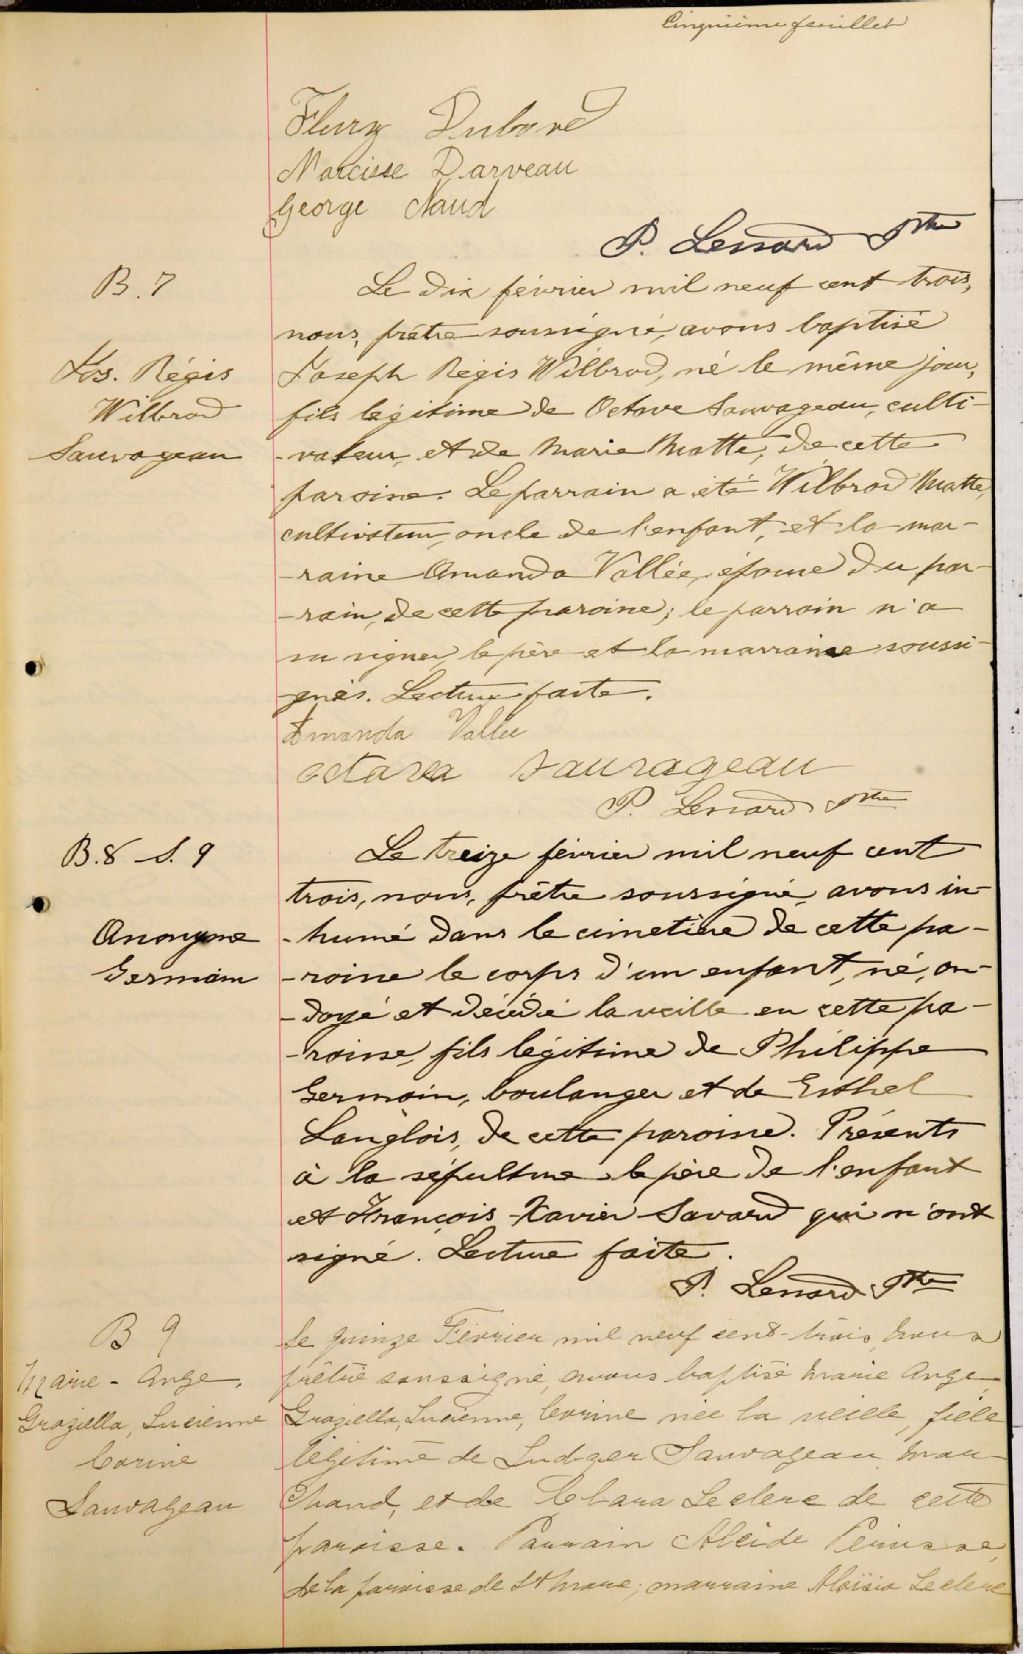 Cinquième feuillet
Flury Dubord
Narcisse Darveau
George Naud
P. Lessard Ptre
B. 7
Jos. Régis
Wilbrod
Sauvageau
Le dix février mil neuf cent trois,
nous, prêtre soussigné, avons baptisé
Joseph Régis Wilbrod, né le même jour,
fils légitime de Octave Sauvageau, culti-
-vateur, et de Marie Matte, de cette
paroisse. Le parrain a été Wilbrod Matte
cultivateur, oncle de l'enfant, et la mar-
-raine Amanda Vallée, épouse du par-
-rain, de cette paroisse; le parrain n'a
su signer, le père et la marraine soussi-
gnés. Lecture faite.
Amanda Vallee
octava Sauvageau
P. Lessard Ptre
B. 8 S. 9
Anonyme
Germain
Le treize février mil neuf cent
trois, nous, prêtre soussigné, avons in-
-humé dans le cimetière de cette pa-
-roisse le corps d'un enfant, né, on-
-doyé et décédé la veille en cette pa-
-roisse, fils légitime de Philippe
Germain, boulanger et de Esthel
Langlois, de cette paroisse. Présents
à la sépulture le père de l'enfant
et François-Xavier Savard qui n'ont
signé. Lecture faite.
P. Lessard Ptre
B 9
Marie-Ange,
Graziella, Lucienne
Corine
Sauvageau
Le quinze Février mil neuf cent-trois, nous
prêtre soussigné, avons baptisé Marie Ange
Graziella, Lucienne, Corine née la vieille, fille
légitime de Ludger Sauvageau Mar-
chand, et de Clara Leclerc de cette
paroisse. Parrain Alcide Perusse,
de la paroisse de St Marc; marraine Aloïsia Leclerc